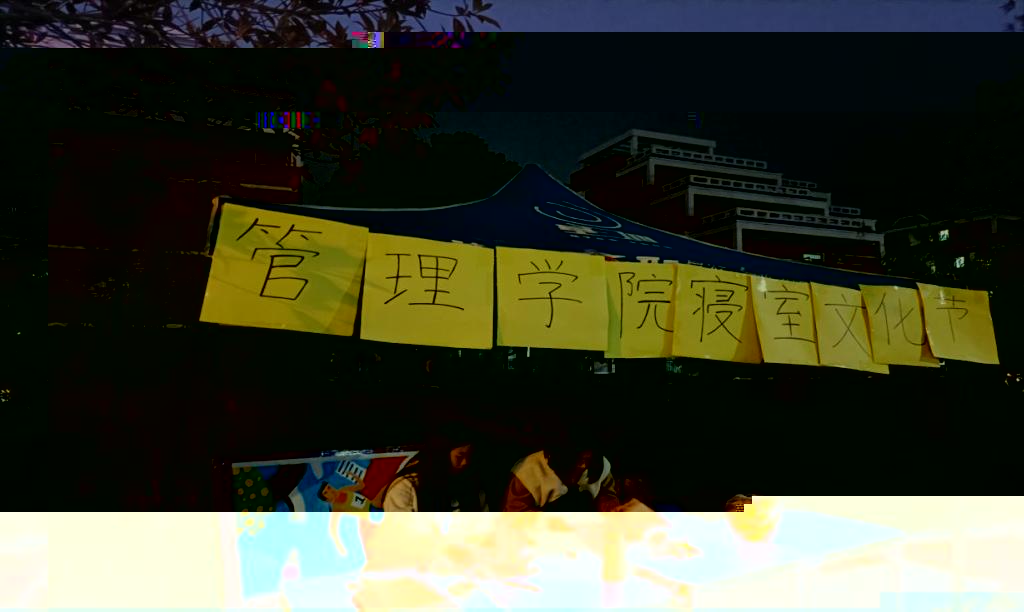 管理学院寝室文化节
1